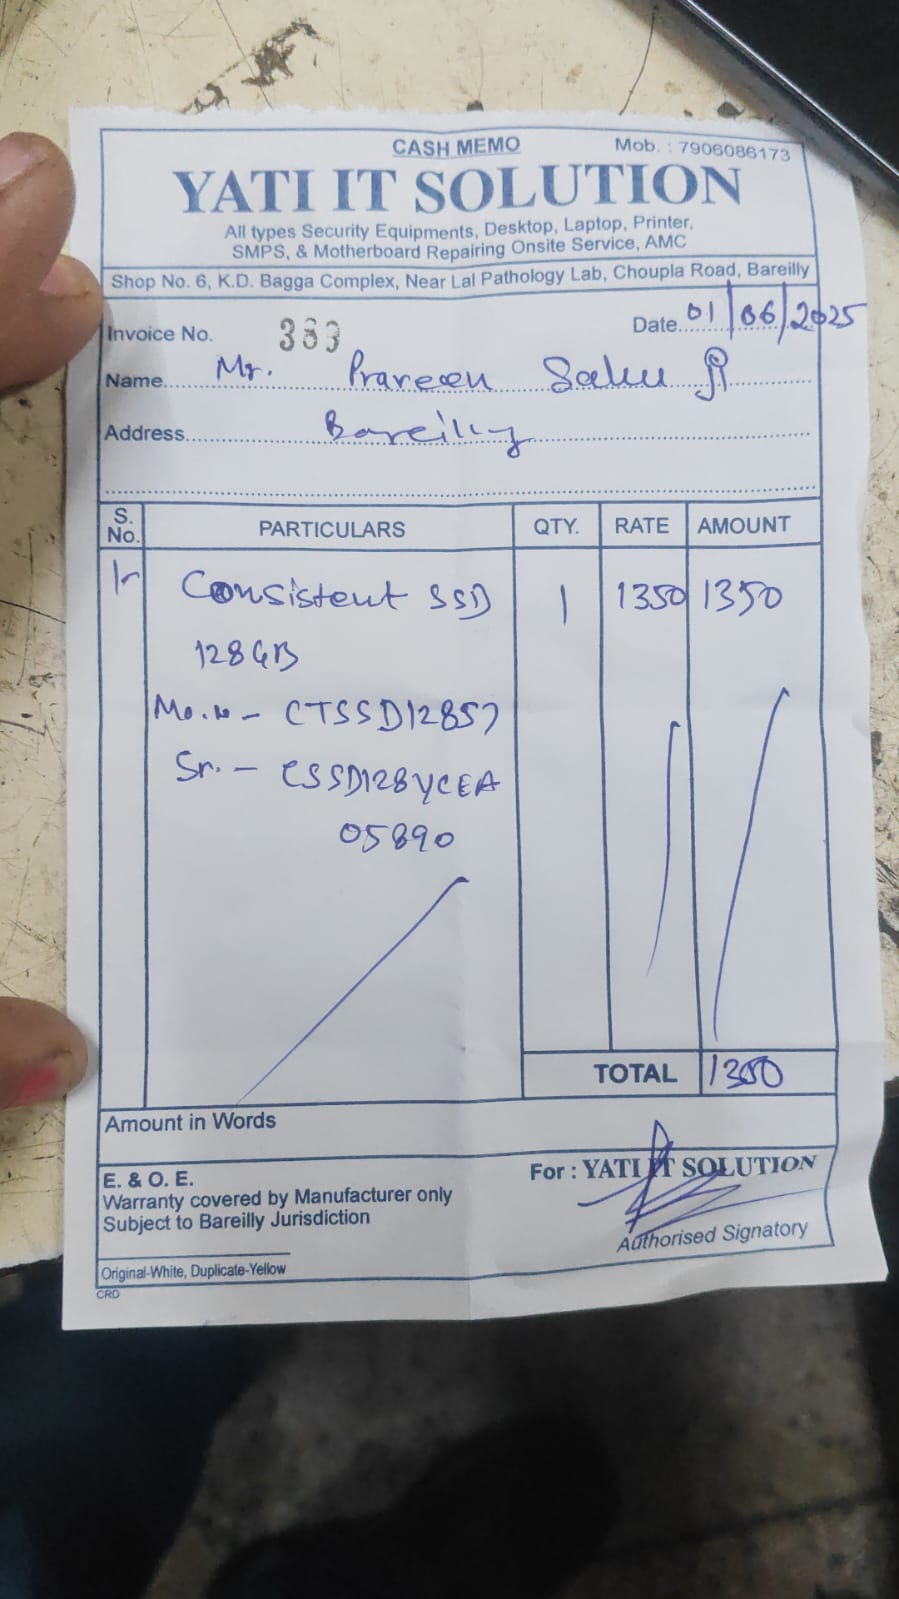 CASH MEMO Mob. : 7906086173
YATI IT SOLUTION
All types Security Equipments, Desktop, Laptop, Printer,
SMPS, & Motherboard Repairing Onsite Service, AMC
Shop No. 6, K.D. Bagga Complex, Near Lal Pathology Lab, Choupla Road, Bareilly
Invoice No. 383 Date 01/06/2025
Name Mr. Praveen Sahu Ji
Address Bareilly
S. No. PARTICULARS QTY. RATE AMOUNT
1- Consistent SSD 1 1350 1350
128GB
Mo.no - CTSSD128S7
Sr. - CSSD128YCEA
05890
TOTAL 1350
Amount in Words
E. & O. E.
Warranty covered by Manufacturer only
Subject to Bareilly Jurisdiction
For : YATI IT SOLUTION
Authorised Signatory
Original-White, Duplicate-Yellow
CRD